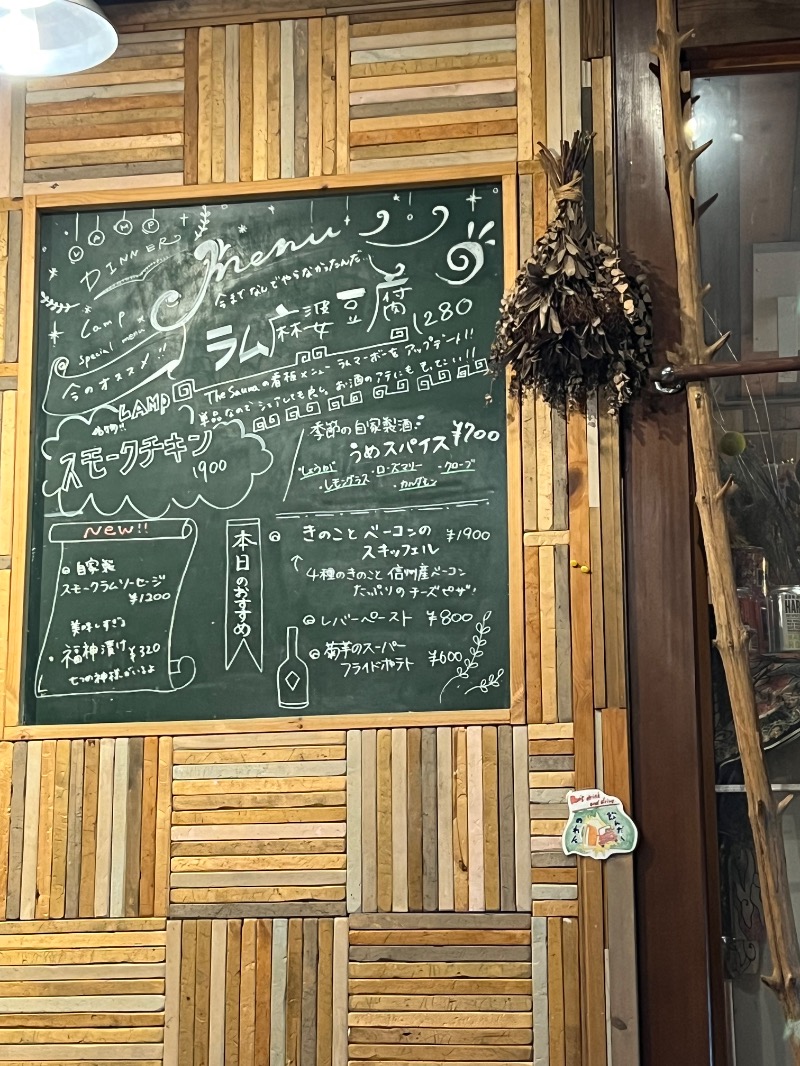 LAMP
DINNER
menu
Lamp
special menu
今のオススメ!!
今までなんでやらなかったんだ…
ラム麻婆豆腐
1280
The Saunaの看板メニュー ラムマーボーを アップデート!!
単品なのでシェアしても良し、お酒のアテにも もってこい!!
LAMP
名物!!
スモークチキン
1900
季節の自家製酒
うめスパイス ¥700
・しょうが ・ローズマリー ・クローブ
・レモングラス ・カルダモン
New!!
自家製
スモークラムソーセージ
¥1200
美味しすぎる
・福神漬け ¥320
七つの神様がいるよ
本日のおすすめ
きのことベーコンの
スキッフェル ¥1900
↑
4種のきのこと 信州産ベーコン
たっぷりのチーズピザ!
レバーペースト ¥800
菊芋のスーパー
フライドポテト ¥600
Don't drink
and drive
のれん